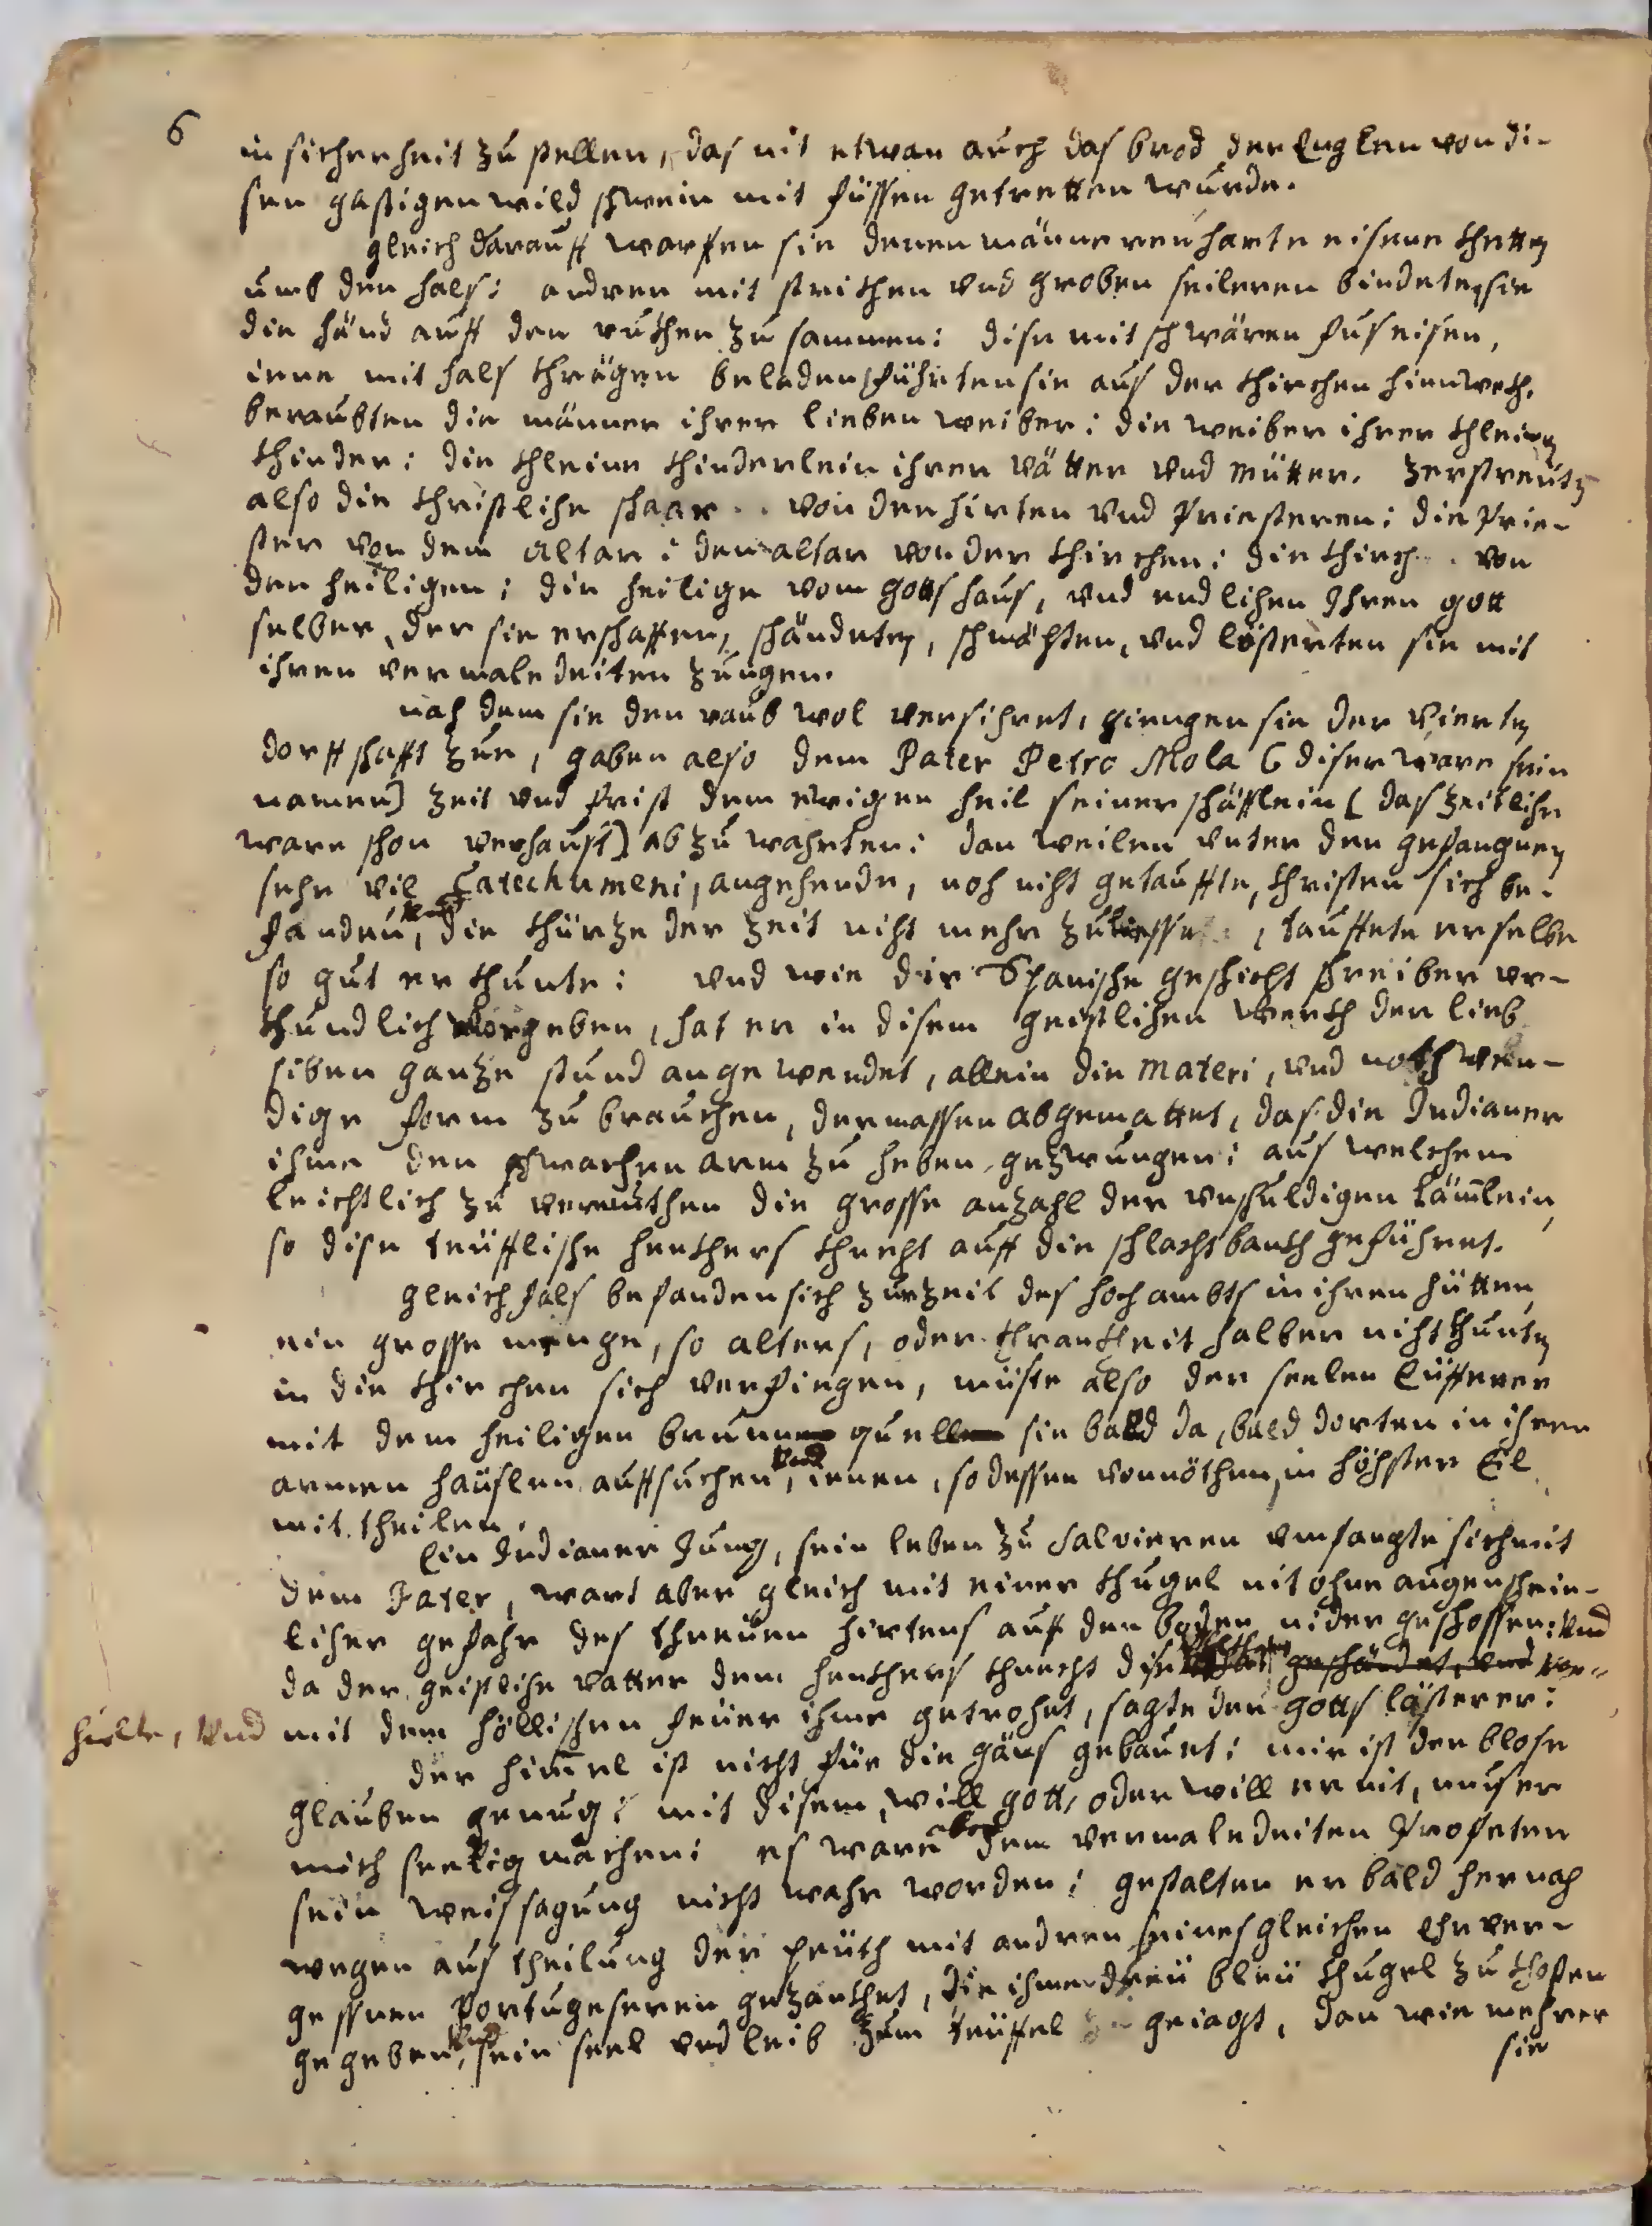 6
in sicherheit zu stellen, das nit etwan auch das brod der Englen von di-
sen gastigen wild schwein mit füssen getretten wurde.
gleich darauff warffen sie denen männeren harte eisene thetten
umb den hals: andren mit strithen und groben seileren bindeten sie
die händ auff den ruthen zu sammen: dise mit schwären fuseisen,
iene mit hals thrägen beladen führten sie aus der thirchen hinweth.
beraubten die männer ihrer lieben weiber: die weiber ihrer thleinen
thinder: die thleine thinderlein ihren vätter und mütter. zerstreuten
also die christliche schaar von den hirten und Priesteren: die Prie-
ster von dem Altar: den altar von der thirchen: die thirch von
den heiligen: die heilige vom gotts haus, und endlichen Ihren gott
selber, der sie erschaffen, schändeten, schmächten, und lösterten sie mit
ihren vermaledeiten zungen.
nach dem sie den raub wol versichret, giengen sie der vierten
dorffschafft zue, gaben also dem Pater Petro Mola (diser ware sein
namen) zeit und frist dem ewigen heil seiner schäfflein (das zeitliche
ware schon verhaust) ab zu wahrten: dan weilen unter den gefangnen
sehr vil Catechumeni, angehende, noch nicht getauffte, christen sich be-
fanden, und die thürze der zeit nicht mehr zuliesse, tauffete er selbe
so gut er thunte: und wie die Spanische geschicht schreiber ur-
thundlich vorgeben, hat er in disem geistlichen werth der lieb
siben ganze stund angewendet, allein die materi, und nothwen-
dige form zu brauchen, dermassen abgemattet, das die Indianer
ihme den schwachen arm zu heben gezwungen: aus welchem
leichtlich zu vermuthen die grosse anzahl der unschuldigen Lämlein,
so dise teüfflische henthers thnecht auff die schlachtbanth geführet.
gleichfals befanden sich zur zeit des hochambts in ihren hütten
ein grosse menge, so alters, oder thrantheit halber nicht thunten
in die thirchen sich verfiegen, müste also der seelen Eüfferer
mit dem heiligen brunn quell sie bald da, bald dorten in ihren
armen häuslen auffsuchen, und ienen, so dessen vonnöthen, in höchster Eil
mit theilen.
Ein Indianer Jung, sein leben zu salvieren umfangte sich mit
dem Pater, wart aber gleich mit einer thugel nit ohne augenschein-
licher gefahr des threüen hirtens auff den boden nider geschossen: und
da der geistliche vatter dem henthers thnecht dise geschändet, und vor-
hielte, und mit dem höllischen feüer ihme getrohet, sagte der gotts lästerer:
der himel ist nicht für die gäns gebauet: mir ist der blose
glauben genug: mit disem, will gott, oder will er nit, mus er
mich seelig machen: es ware aber dem vermaledeiten Propheten
sein weissagung nicht wahr worden: gestalten er bald hernach
wegen aus theilung der peüth mit andren seines gleichen Ehrver-
gessnen Portugeseren gezanthet, die ihme dreü bleü thugel zu thosten
gegeben, und sein seel und leib zum teüffel geiagt, dan wie mehrer
sie